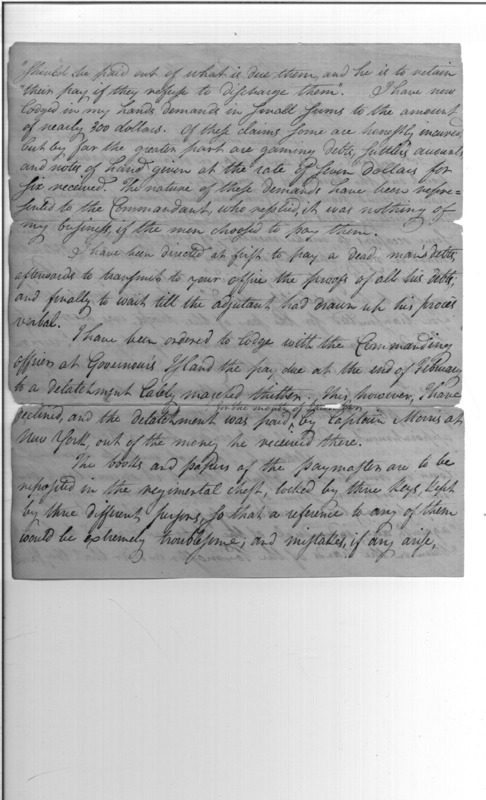 "should be paid out of what is due them, and he is to retain
"their pay if they refuse to discharge them". I have now
lodged in my hands demands in small sums to the amount
of nearly 300 dollars. Of these claims some are honestly incurred,
but by far the greater part are gaming debts, sutler's accounts
and notes of hand given at the rate of seven dollars for
six received. The nature of these demands have been repre-
sented to the Commandant, who replied, it was nothing of
my business, if the men choosed to pay them.
I have been directed at first to pay a dead man's debts,
afterwards to transmit to your office the proofs of all his debts,
and finally to wait till the adjutant had drawn up his proces
verbal.
I have been ordered to lodge with the Commanding
officer at Governour's Island the pay due at the end of February
to a detatchment lately marched thither. This, however, I have
for the months of
declined, and the detatchment was paid, by Captain Morris at
New York, out of the money he received there.
The books and papers of the paymaster are to be
reposited in the regimental chest, locked by three keys, kept
by three different persons, so that a reference to any of them
would be extremely troublesome; and mistakes, if any arise,